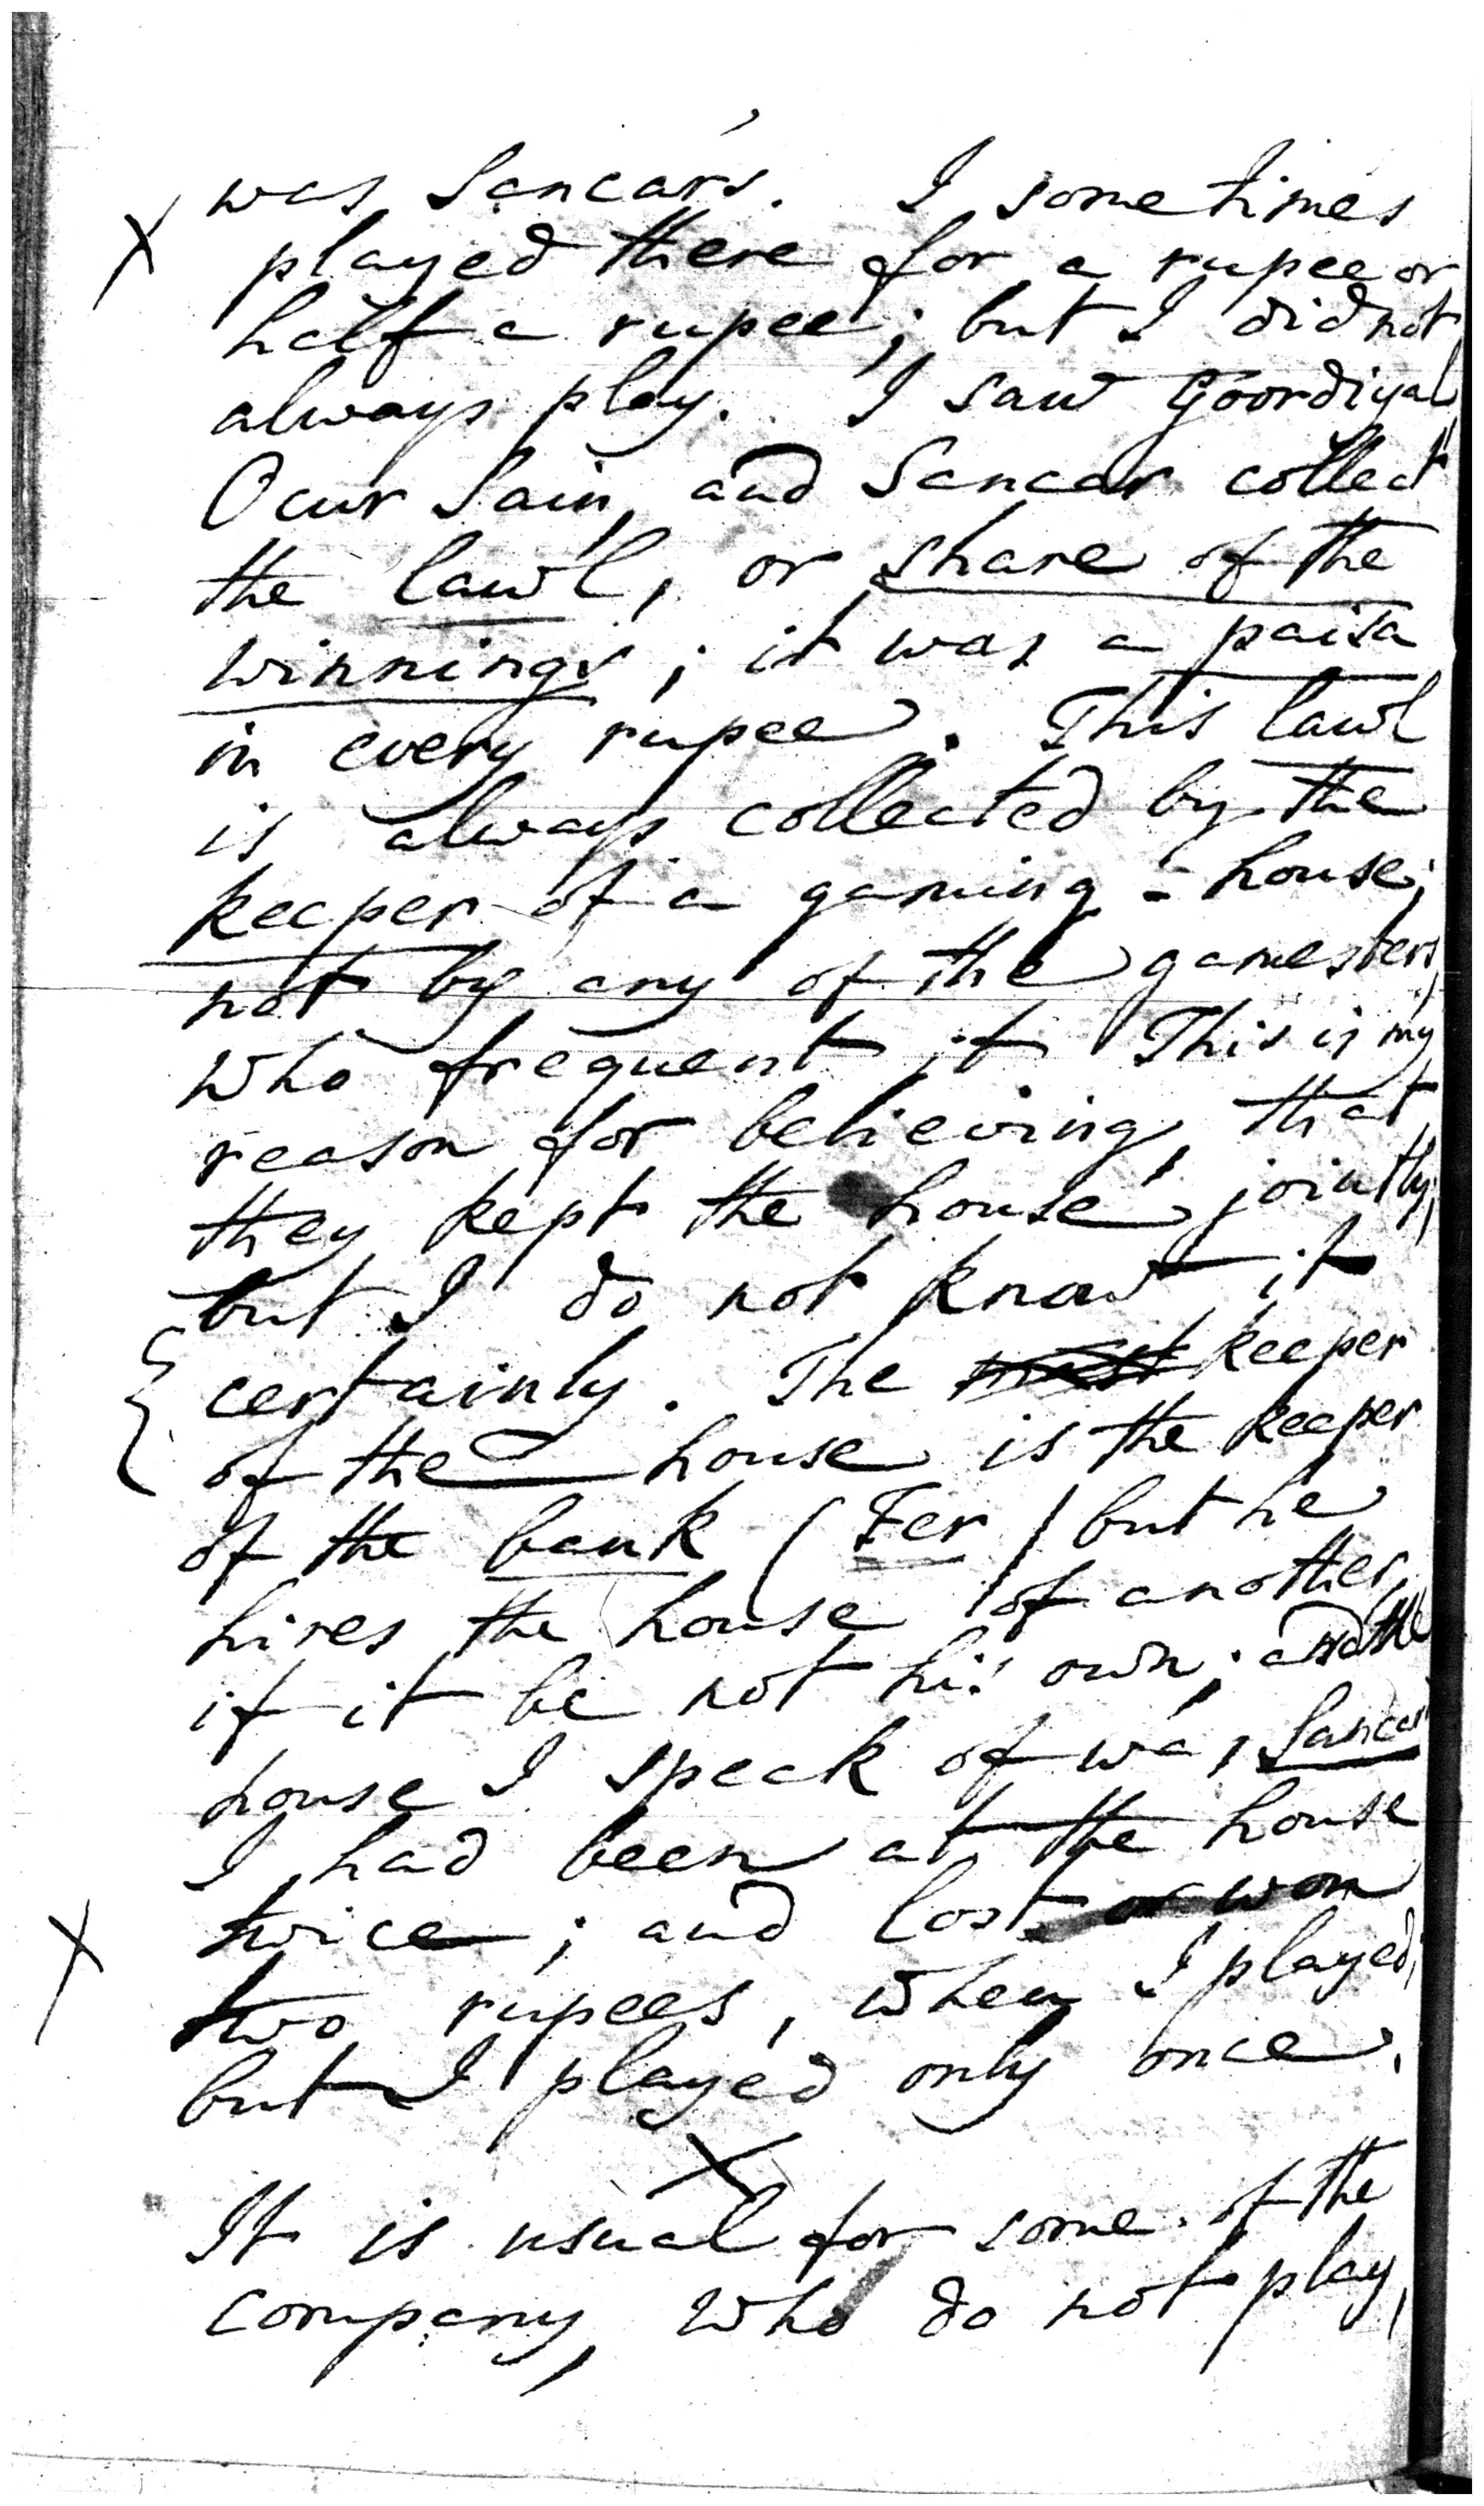 was Sancar's. I sometimes
played there for a rupee or
half a rupee; but I did not
always play. I saw Goordiyal,
Ocur Sain, and Sancar collect
the lawl, or share of the
winnings; it was a paisa
in every rupee. This lawl
is always collected by the
keeper of a gaming-house;
not by any of the gamesters,
who frequent it This is my
reason for believing, that
they kept the house jointly;
but I do not know it
certainly. The keeper
of the house is the keeper
of the bank (Fer) but he
hires the house of another,
if it be not his own; and the
house I speak of was Sancar's
I had been at the house
twice; and lost or won
two rupees, when I played;
but I played only once.
It is usual for some of the
company, who do not play,